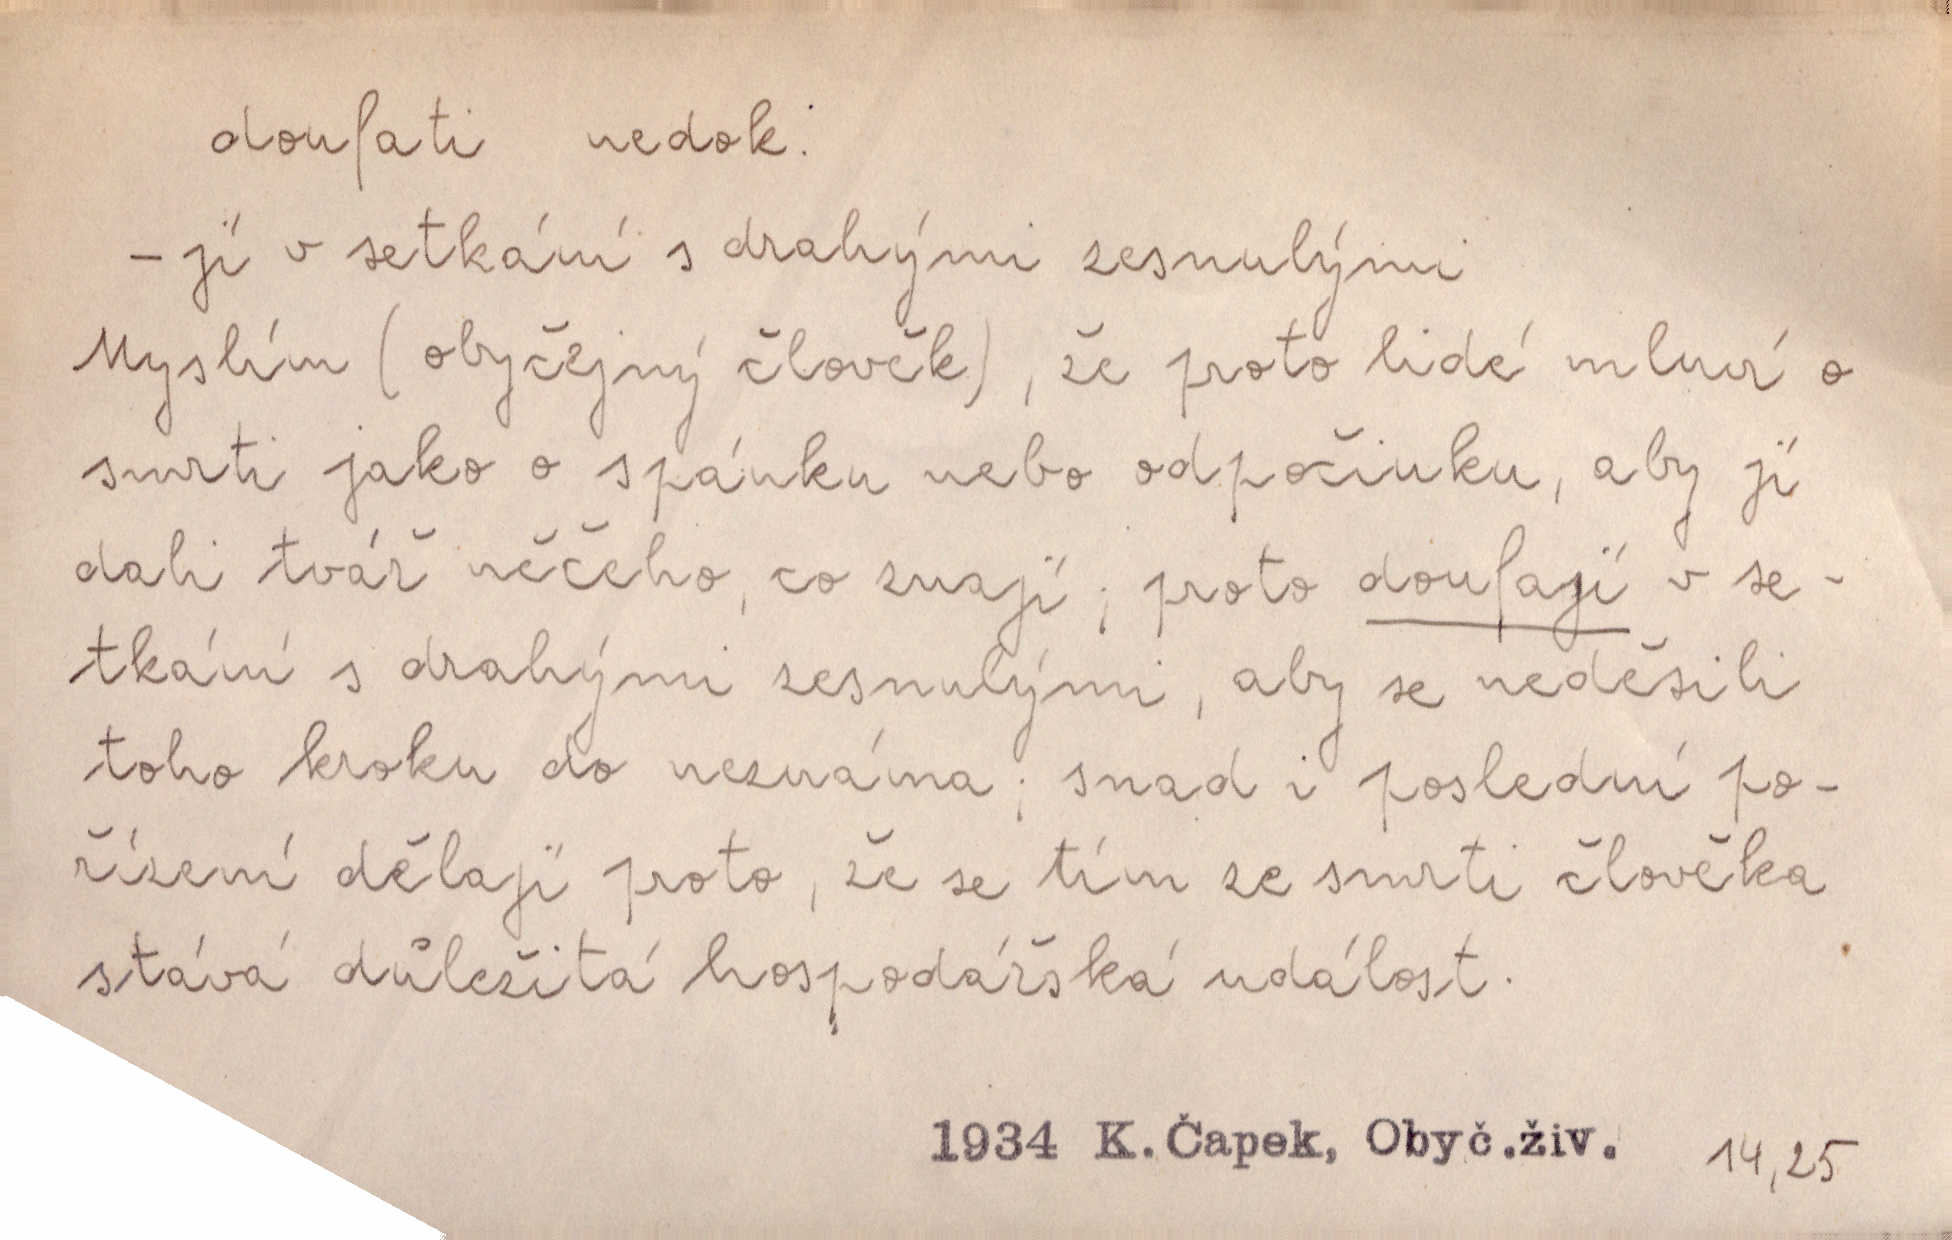 doufati nedok.
- jí v setkání s drahými zesnulými
Myslím (obyčejný člověk), že proto lidé mluví o
smrti jako o spánku nebo odpočinku, aby jí
dali tvář něčeho, co znají; proto doufají v se-
tkání s drahými zesnulými, aby se neděsili
toho kroku do neznáma; snad i poslední po-
řízení dělají proto, že se tím ze smrti člověka
stává důležitá hospodářská událost.
1934 K. Čapek, Obyč.živ. 14,25